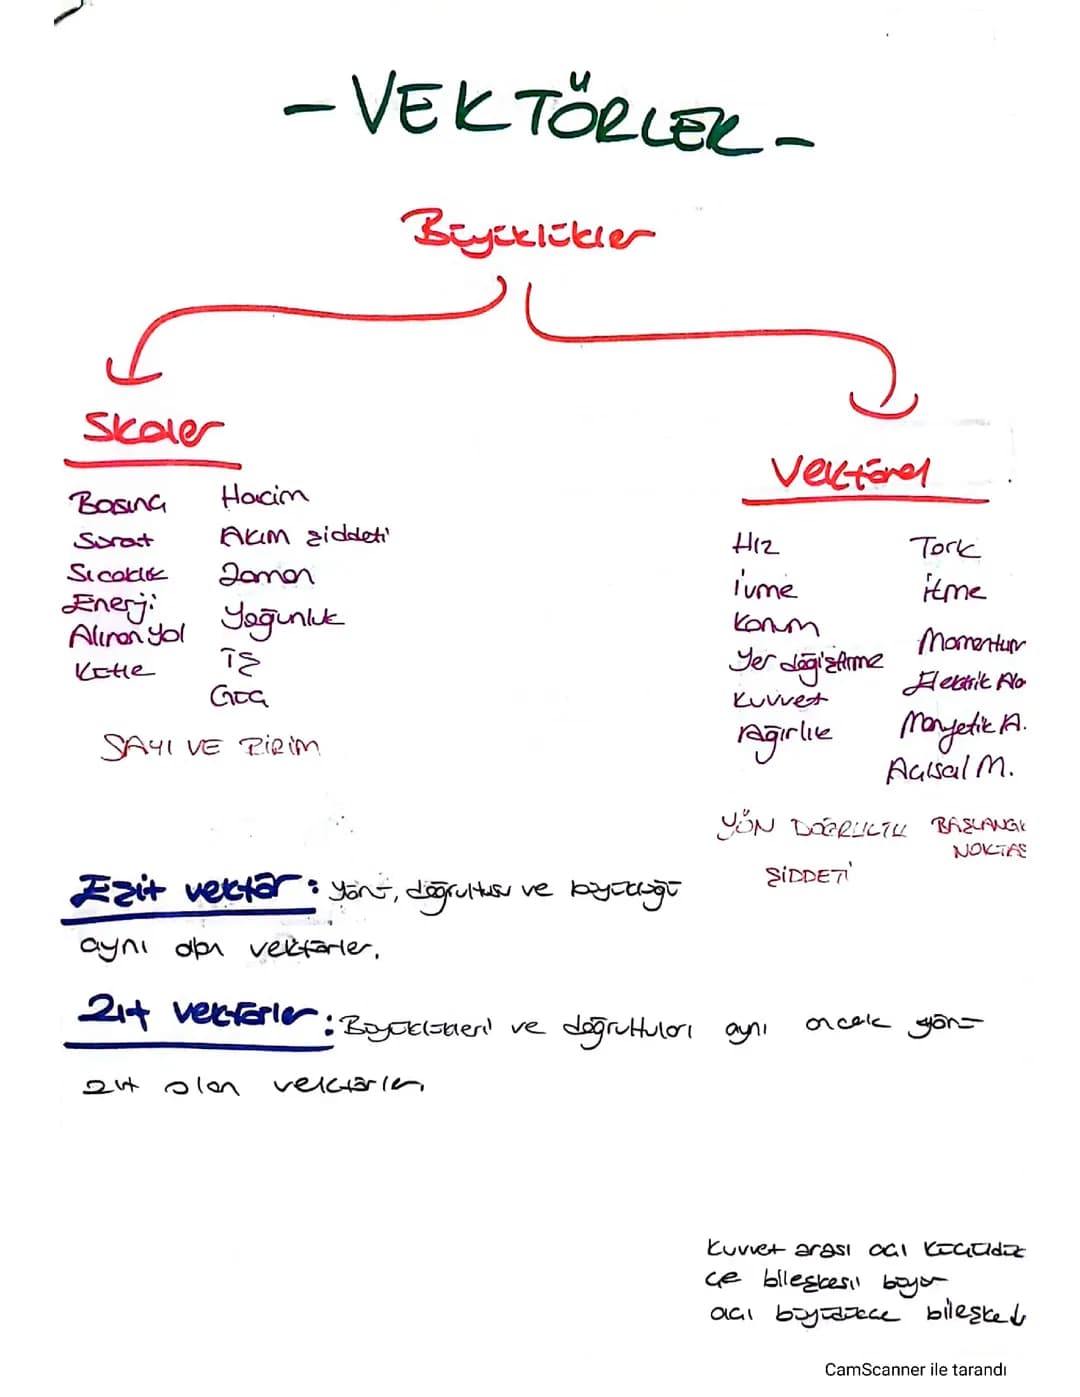 - VEKTÖRLER -
Büyüklükler
Skaler
Basınç Hacim
Sürat Akım şiddeti
Sıcaklık Zaman
Enerji Yoğunluk
Alınan Yol
Kütle İş
Güç
SAYI VE BİRİM
Vektörel
Hız Tork
İvme İtme
Konum Momentum
Yer değiştirme Elektrik Ala
Kuvvet
Ağırlık Manyetik A.
Açısal M.
YÖN DOĞRULTU BAŞLANGI
NOKTAS
ŞİDDETİ
Eşit vektör: Yönü, doğrultusu ve büyüklüğü
aynı olan vektörler.
Zıt vektörler: Büyüklükleri ve doğrultuları aynı ancak yönü
zıt olan vektörler
Kuvvet arası açı küçüldük
çe bileşkesi büyür
açı büyüdükçe bileşke ↓
CamScanner ile tarandı